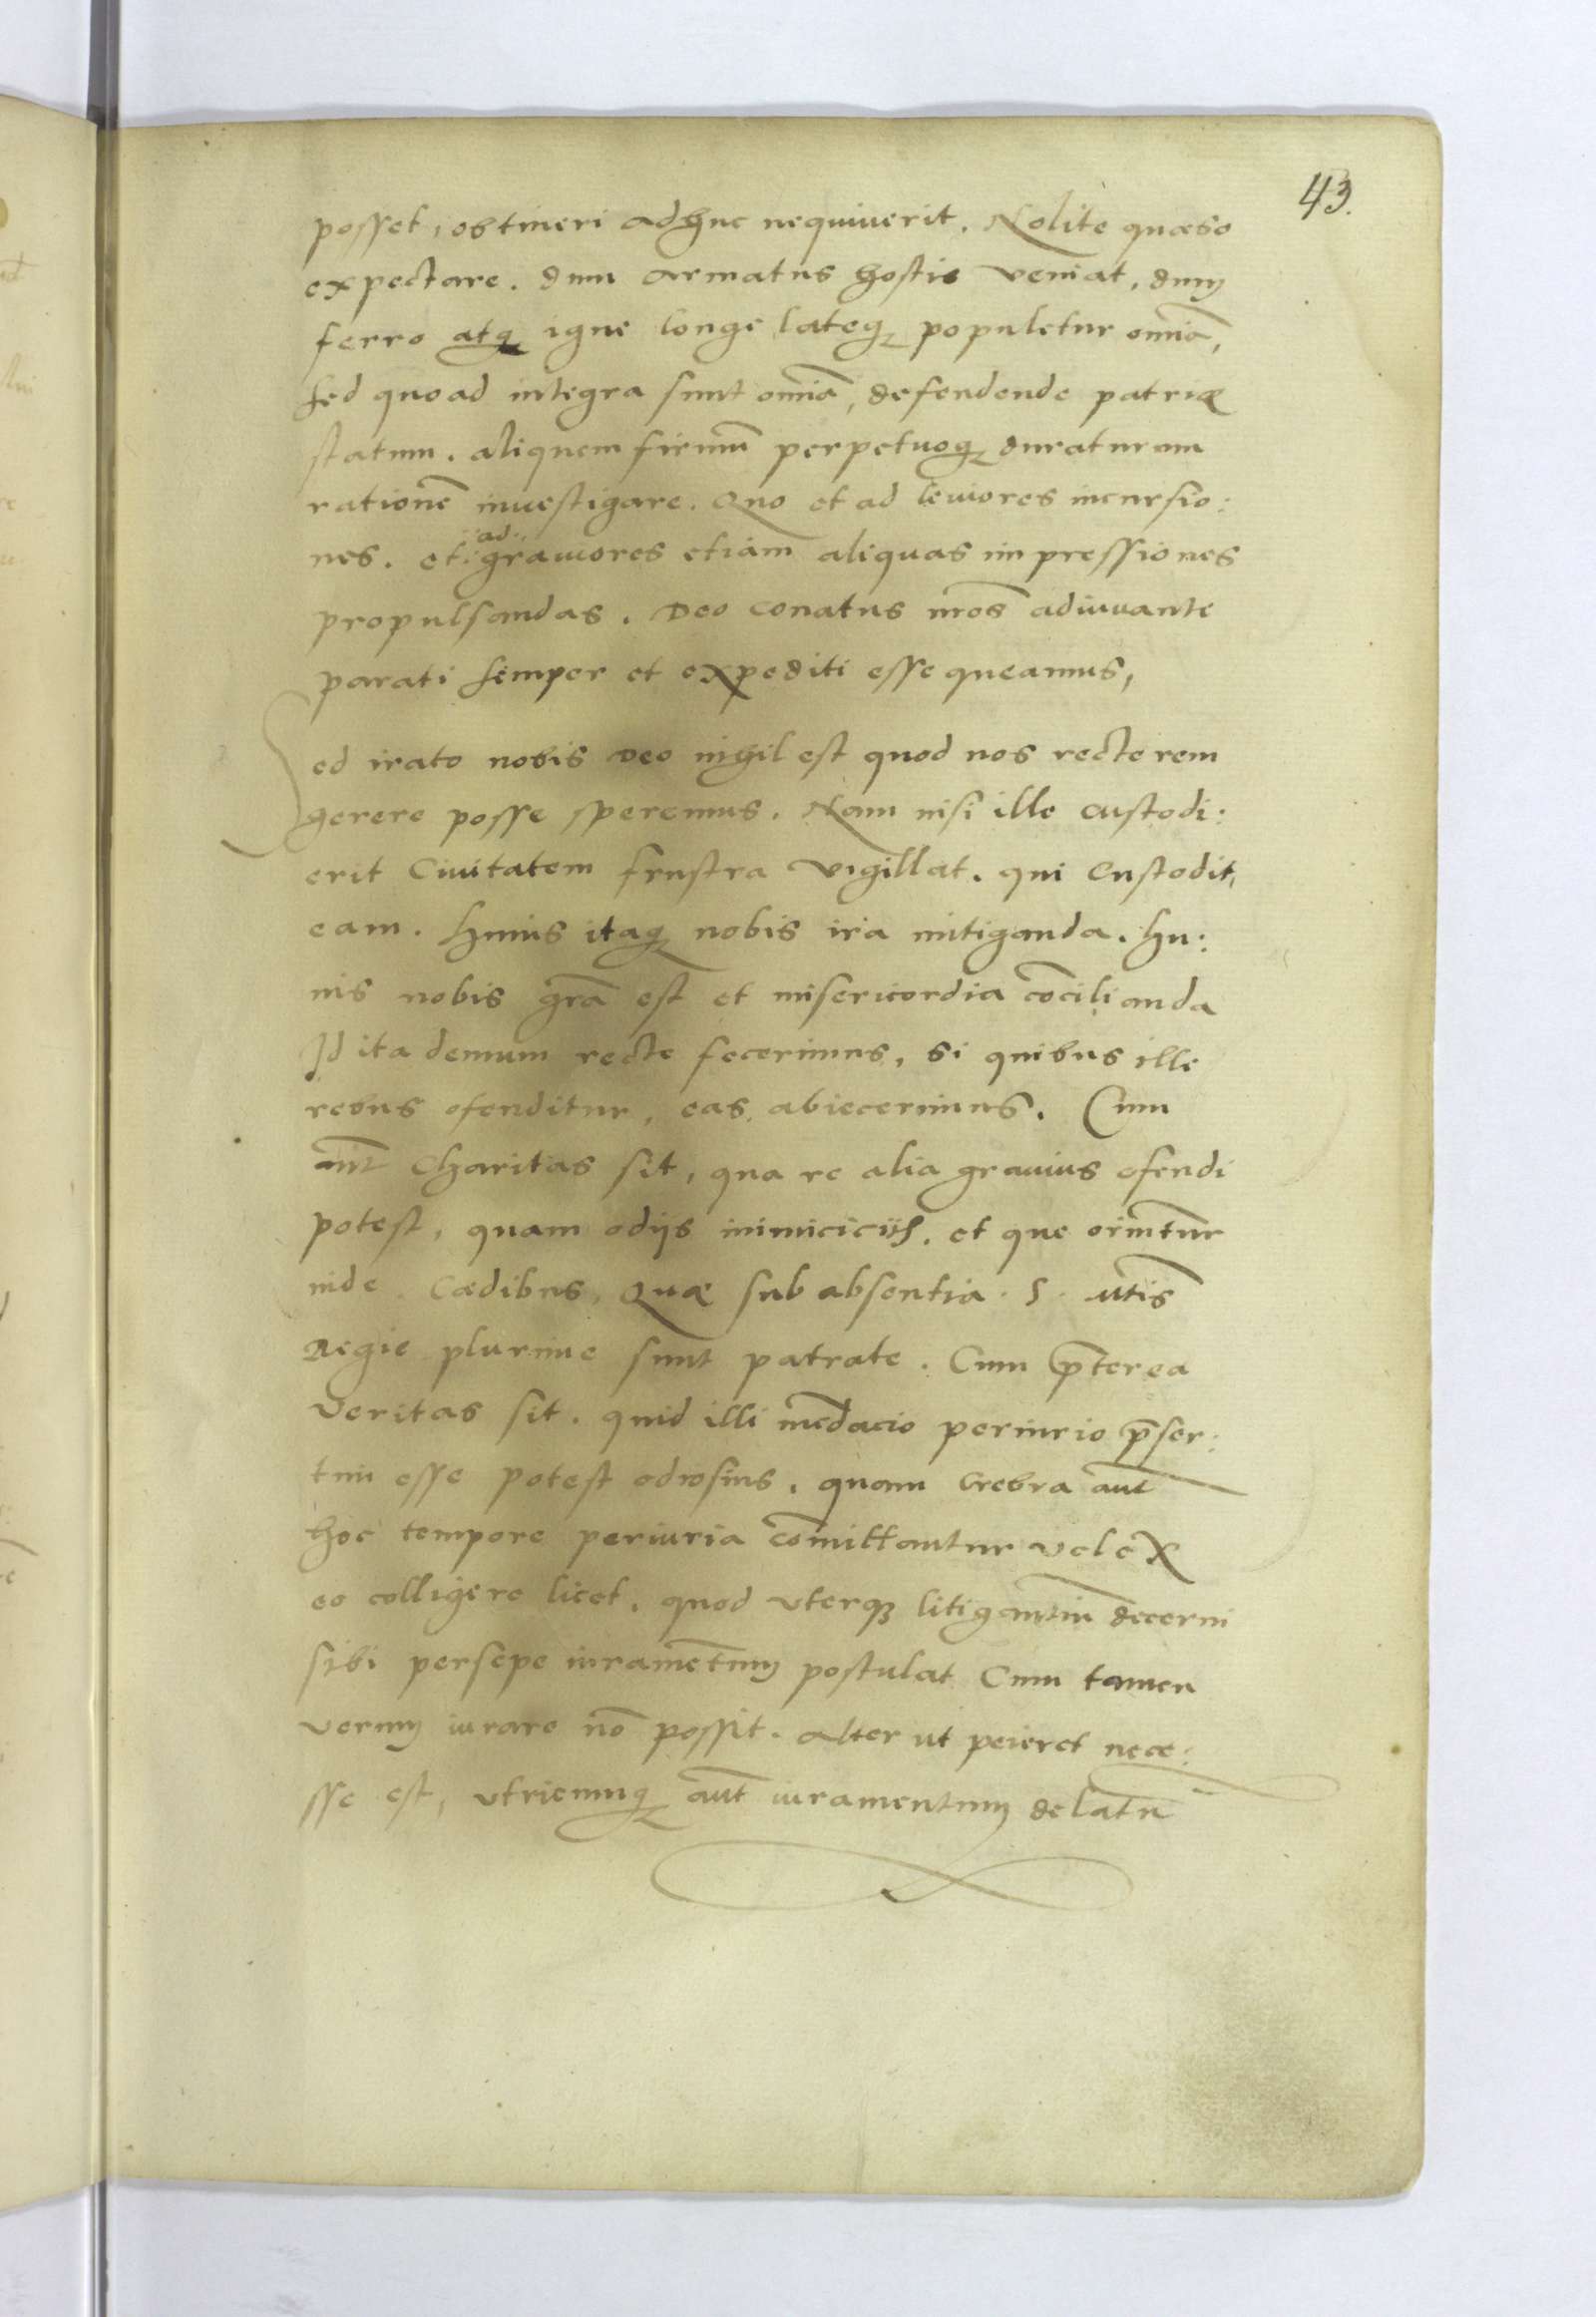 43.
posset, obtineri adhuc nequiuerit. Nolite quæso
expectare. dum armatus hostis veniat, dum
ferro atq; igne longe lateq; populetur omīa,
sed quoad integra sunt omīa, defendende patriæ
statum. aliquem firmū perpetuoq; duraturam
rationē inuestigare. Quo et ad leuiores incursio:
nes. et ad grauiores etiam aliquas impressiones
propulsandas. Deo conatus nr̄os adiuuante
parati semper et expediti esse queamus,
Sed irato nobis Deo nihil est quod nos recte rem
gerere posse speremus. Nam nisi ille custodi:
erit Ciuitatem frustra vigillat. qui Custodit,
eam. Huius itaq; nobis ira mitiganda. hu:
ius nobis grā est et misericordia cōcilianda
Id ita demum recte fecerimus, si quibus ille
rebus ofenditur, eas abiecerimus. Cum
aūt Charitas sit, qua re alia grauius ofendi
potest, quam odijs inimicicijs. et que oriūtur
inde. Cædibus, Quæ sub absentia. S. Mtis
Regie plurime sunt patrate. Cum p̄terea
Veritas sit. quid illi mēdacio periurio p̄ser:
tim esse potest odiosius. quam Crebra aūt
hoc tempore periuria cōmittantur vel ex
eo colligere licet. quod vterq; litigantiū decerni
sibi persepe iuramētum postulat Cum tamen
verum iurare nō possit. alter ut peieret nece:
sse est, vtricunq; aūt iuramentum delatū